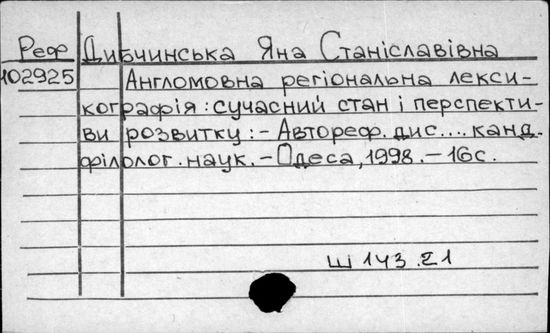 Реф Дибчинська Яна Станіславівна
102925 Англомовна регіональна лекси-
кографія: сучасний стан і перспекти-
ви розвитку: - Автореф. дис.... канд.
філолог. наук. - Одеса, 1998. - 16с.
Ш 143.21